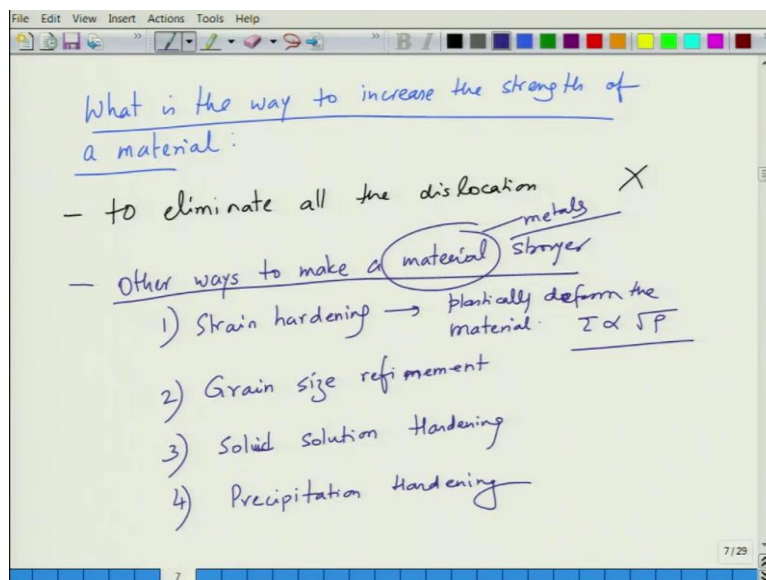 File Edit View Insert Actions Tools Help
What is the way to increase the strength of
a material :
- to eliminate all the dislocation X
metals
- Other ways to make a material stronger
1) Strain hardening → plastically deform the
material. τ ∝ √ρ
2) Grain size refinement
3) Solid solution Hardening
4) Precipitation Hardening
7/29
7